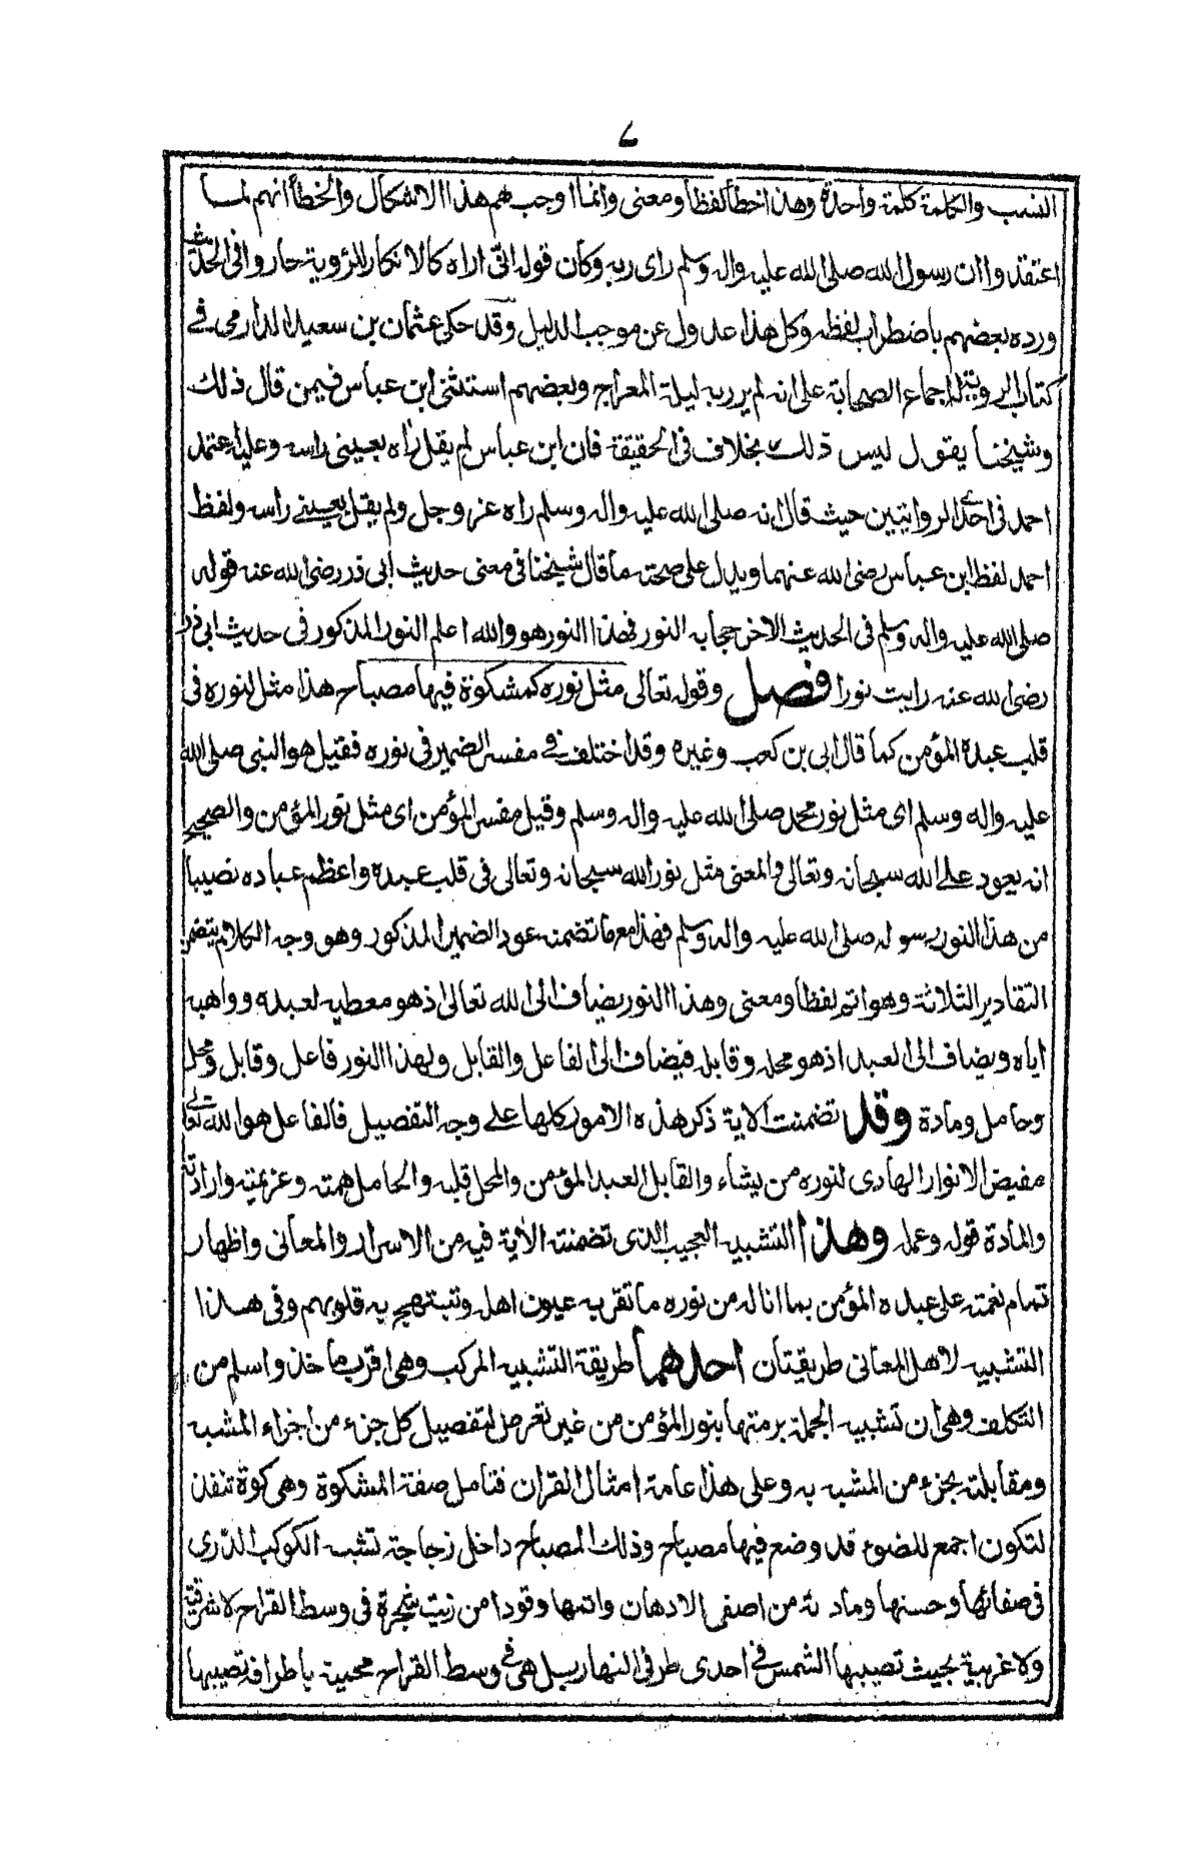 ٧
النسب والكلمة كلمة واحدة وهذا خطأ لفظا ومعنى وانما اوجب لهم هذا الاشكال والخطأ انهم لما
اعتقدوا ان رسول الله صلى الله عليه واله وسلم راى ربه وكان قوله انى اراه كالانكار للرؤية حاروا فى الحديث
ورده بعضهم باضطراب لفظه وكل هذا عدول عن موجب الدليل وقد حكى عثمان بن سعيد الدارمى فى
كتاب الروية له اجماع الصحابة على انه لم ير ربه ليلة المعراج وبعضهم استثنى ابن عباس فيمن قال ذلك
وشيخنا يقول ليس ذلك بخلاف فى الحقيقة فان ابن عباس لم يقل راه بعينى راسه وعليه اعتمد
احمد فى احدى الروايتين حيث قال انه صلى الله عليه واله وسلم راه عز وجل ولم يقل بعينى راسه ولفظ
احمد لفظ ابن عباس رضى الله عنهما ويدل على صحة ما قال شيخنا فى معنى حديث ابى ذر رضى الله عنه قوله
صلى الله عليه واله وسلم فى الحديث الاخر حجابه النور فهذا النور هو والله اعلم النور المذكور فى حديث ابى ذر
رضى الله عنه رايت نورا فصل وقوله تعالى مثل نوره كمشكوة فيها مصباح هذا مثل لنوره فى
قلب عبده المؤمن كما قال ابى بن كعب وغيره وقد اختلف فى مفسر الضمير فى نوره فقيل هو النبى صلى الله
عليه واله وسلم اى مثل نور محمد صلى الله عليه واله وسلم وقيل مفسره المؤمن اى مثل نور المؤمن والصحيح
انه يعود على الله سبحانه وتعالى والمعنى مثل نور الله سبحانه وتعالى فى قلب عبده واعظم عباده نصيبا
من هذا النور رسوله صلى الله عليه واله وسلم فهذا مع ما تضمنه عود الضمير المذكور وهو وجه الكلام يتضمن
التقادير الثلاثة وهو اتم لفظا ومعنى وهذا النور يضاف الى الله تعالى اذ هو معطيه لعبده وواهبه
اياه ويضاف الى العبد اذ هو محله وقابله فيضاف الى الفاعل والقابل ولهذا النور فاعل وقابل ومحل
وحامل ومادة وقد تضمنت الاية ذكر هذه الامور كلها على وجه التفصيل فالفاعل هو الله تعالى
مفيض الانوار الهادى لنوره من يشاء والقابل العبد المؤمن والمحل قلبه والحامل همته وعزيمته وارادته
والمادة قوله وعمله وهذا التشبيه العجيب الذى تضمنته الاية فيه من الاسرار والمعانى واظهار
تمام نعمته على عبده المؤمن بما اناله من نوره ما تقر به عيون اهله وتبتهج به قلوبهم وفى هذا
التشبيه لاهل المعانى طريقتان احدهما طريقة التشبيه المركب وهى اقرب ماخذ واسلم من
التكلف وهى ان تشبيه الجملة برمتها بنور المؤمن من غير تعرض لتفصيل كل جزء من اجزاء المشبه
ومقابلته بجزء من المشبه به وعلى هذا عامة امثال القران فتامل صفة المشكوة وهى كوة تنفذ
لتكون اجمع للضوء قد وضع فيها مصباح وذلك المصباح داخل زجاجة تشبه الكوكب الدرى
فى صفائها وحسنها ومادته من اصفى الادهان واتمها وقودا من زيت شجرة فى وسط القراح لا شرقية
ولا غربية بحيث تصيبها الشمس فى احدى طرفى النهار بل هى فى وسط القراح محمية باطرافه تصيبها